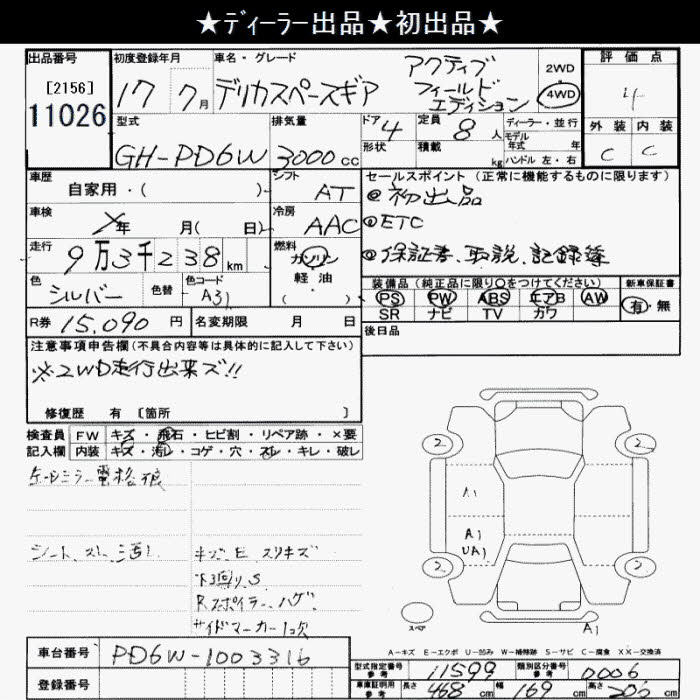 ★ディーラー出品★初出品★
出品番号 初度登録年月 車名・グレード 評価点
[2156] 17 7月 デリカスペースギア アクティブ 2WD 4
11026 フィールド 4WD
エディション
型式 排気量 ドア 4 定員 8人 ディーラー・並行 外装 内装
モデル
GH-PD6W 3000cc 形状 積載 kg 年式 年 C C
ハンドル 左・右
車歴 シフト セールスポイント (正常に機能するものに限ります)
自家用・( ) AT ◎初出品
車検 冷房 ◎ETC
年 月( 日) AAC
走行 燃料 ◎保証書、取説、記録簿
9万3千238km ガソリン
軽油
( )
色 色替 色コード 装備品 (純正品に限り○をつけてください) 新車保証書
シルバー A31 PS PW ABS エアB AW 有・無
SR ナビ TV カワ
R券 15,090円 名変期限 月 日 後日品
注意事項申告欄(不具合内容等は具体的に記入して下さい)
※2WD走行出来ズ!!
修復歴 有 [箇所 ]
検査員 FW キズ・飛石・ヒビ割・リペア跡・×要
記入欄 内装 キズ・汚レ・コゲ・穴・スレ・キレ・破レ
シート、スレ、汚レ キズ、E、スリキズ
下廻り、S
Rスポイラー、ハゲ
サイドマーカー1欠
2 2
A1
A1
UA1
2 2
スペア
A1
A=キズ E=エクボ U=凹み W=補修跡 S=サビ C=腐食 XX=交換済
車台番号 PD6W-1003316
登録番号
型式指定番号 参考 11599 類別区分番号 参考 0006
車庫証明用 参考 長さ 468cm 幅 169cm 高さ 206cm